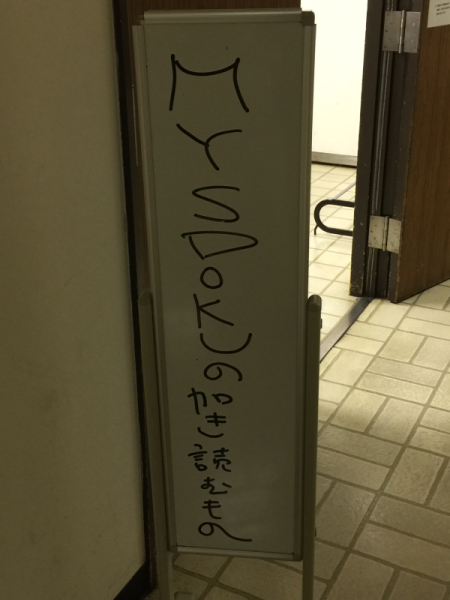 MYSDOKUの加き読むもの